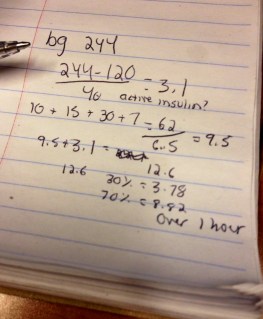 bg 244
244-120 = 3.1
40 active insulin?
10 + 15 + 30 + 7 = 62
6.5 = 9.5
9.5 + 3.1 = 12.6
12.6 30% = 3.78
70% = 8.82
Over 1 hour